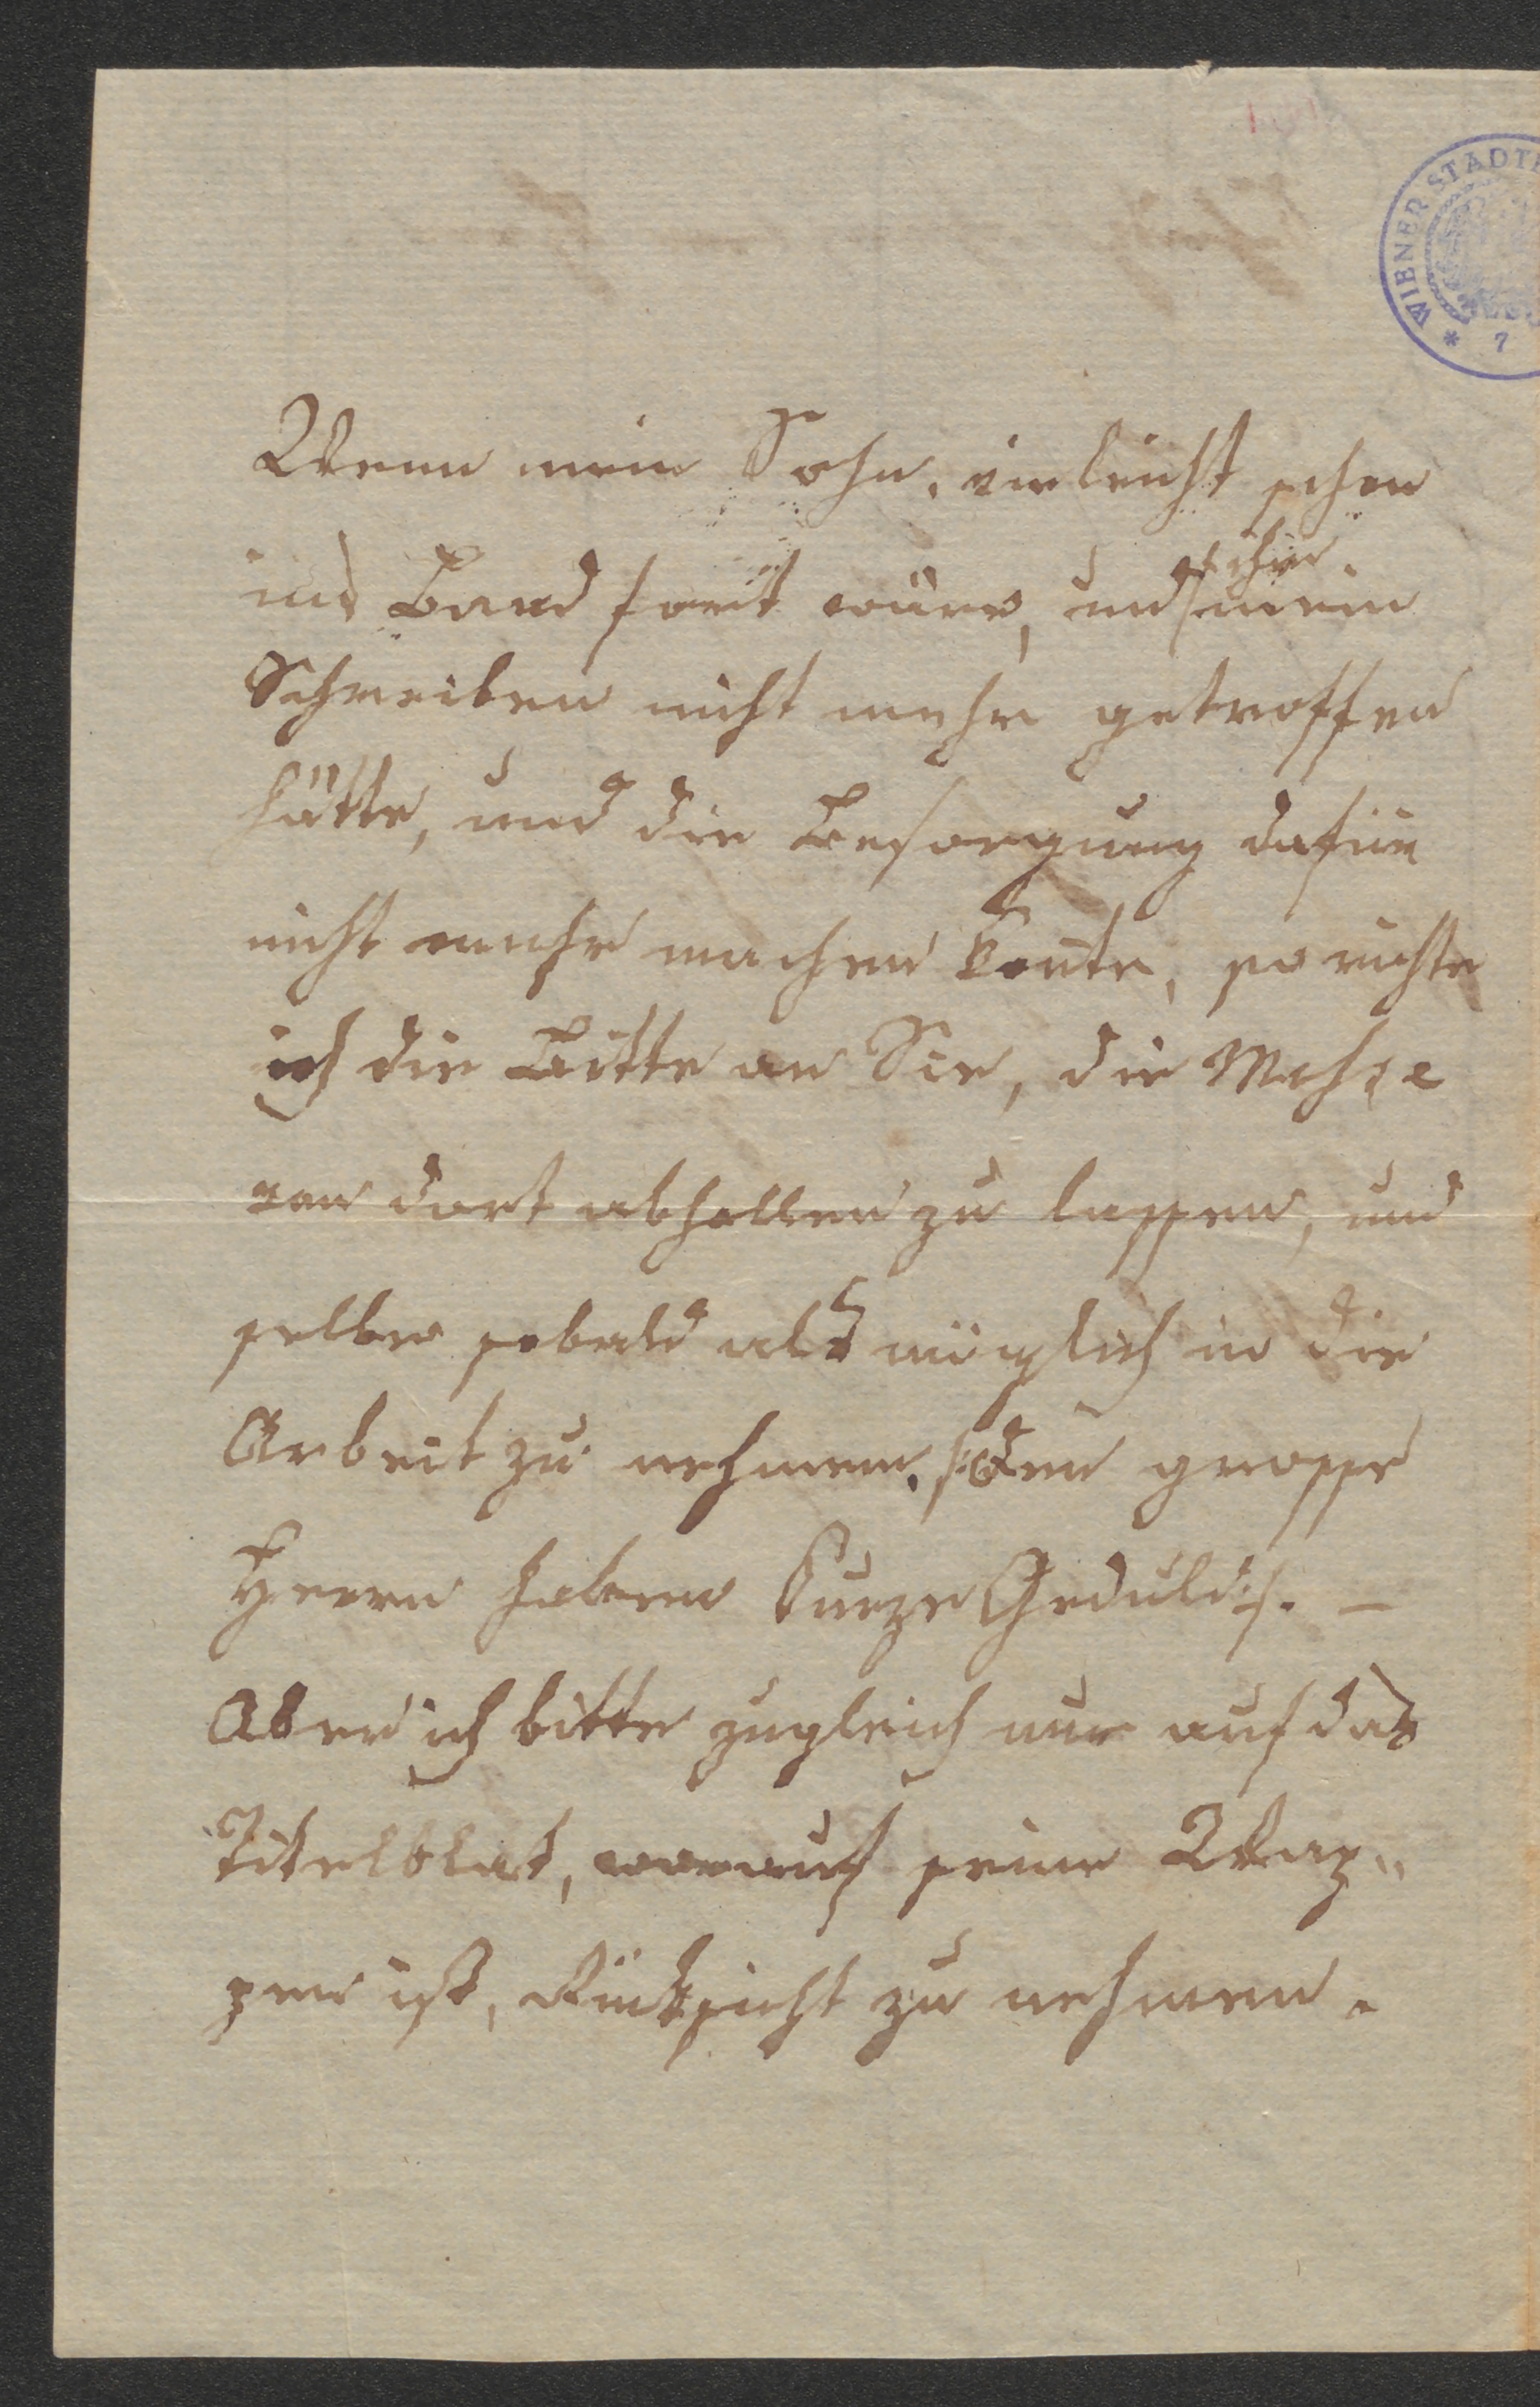 WIENER STADT
* 7
Wenn mein Sohn, vieleicht schon
ins Baad fort wäre, und ihn
mein
Schreiben nicht mehr getroffen
hätte, und die Besorgung dafür
nicht mehr machen konte, so richte
ich die Bitte an Sie, die
von dort abhollen zu lassen, und
selbe sobald als möglich in die
Arbeit zu nehmen. /: Den grosse
Herrn haben kurze Geduld :/. –
Aber ich bitte zugleich nur auf das
Titelblat, worauf seine Wap„
pen ist, Rücksicht zu nehmen.